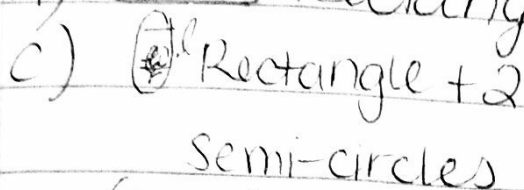 c) Rectangle + 2
semi-circles